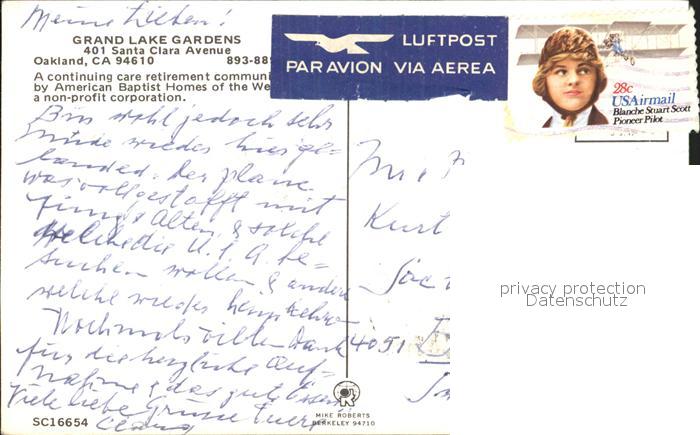 Meine Lieben!
GRAND LAKE GARDENS
401 Santa Clara Avenue
Oakland, CA 94610 893-88
A continuing care retirement communi
by American Baptist Homes of the We
a non-profit corporation.
LUFTPOST
PAR AVION VIA AEREA
28c
USAirmail
Blanche Stuart Scott
Pioneer Pilot
Bin wohl jedoch sehr
müde wieder hier ge-
landed. Der plane
was vollgestopft mit
jung & Alten, & solche
welche die U.S.A. be-
suchen wollen & andere
welche wieder heimkehren
Nochmals vielen Dank
für die herzliche Auf-
nahme & das gute Essen
Viele liebe Grüsse Euer
Kurt
4051
privacy protection
Datenschutz
MIKE ROBERTS
BERKELEY 94710
SC16654